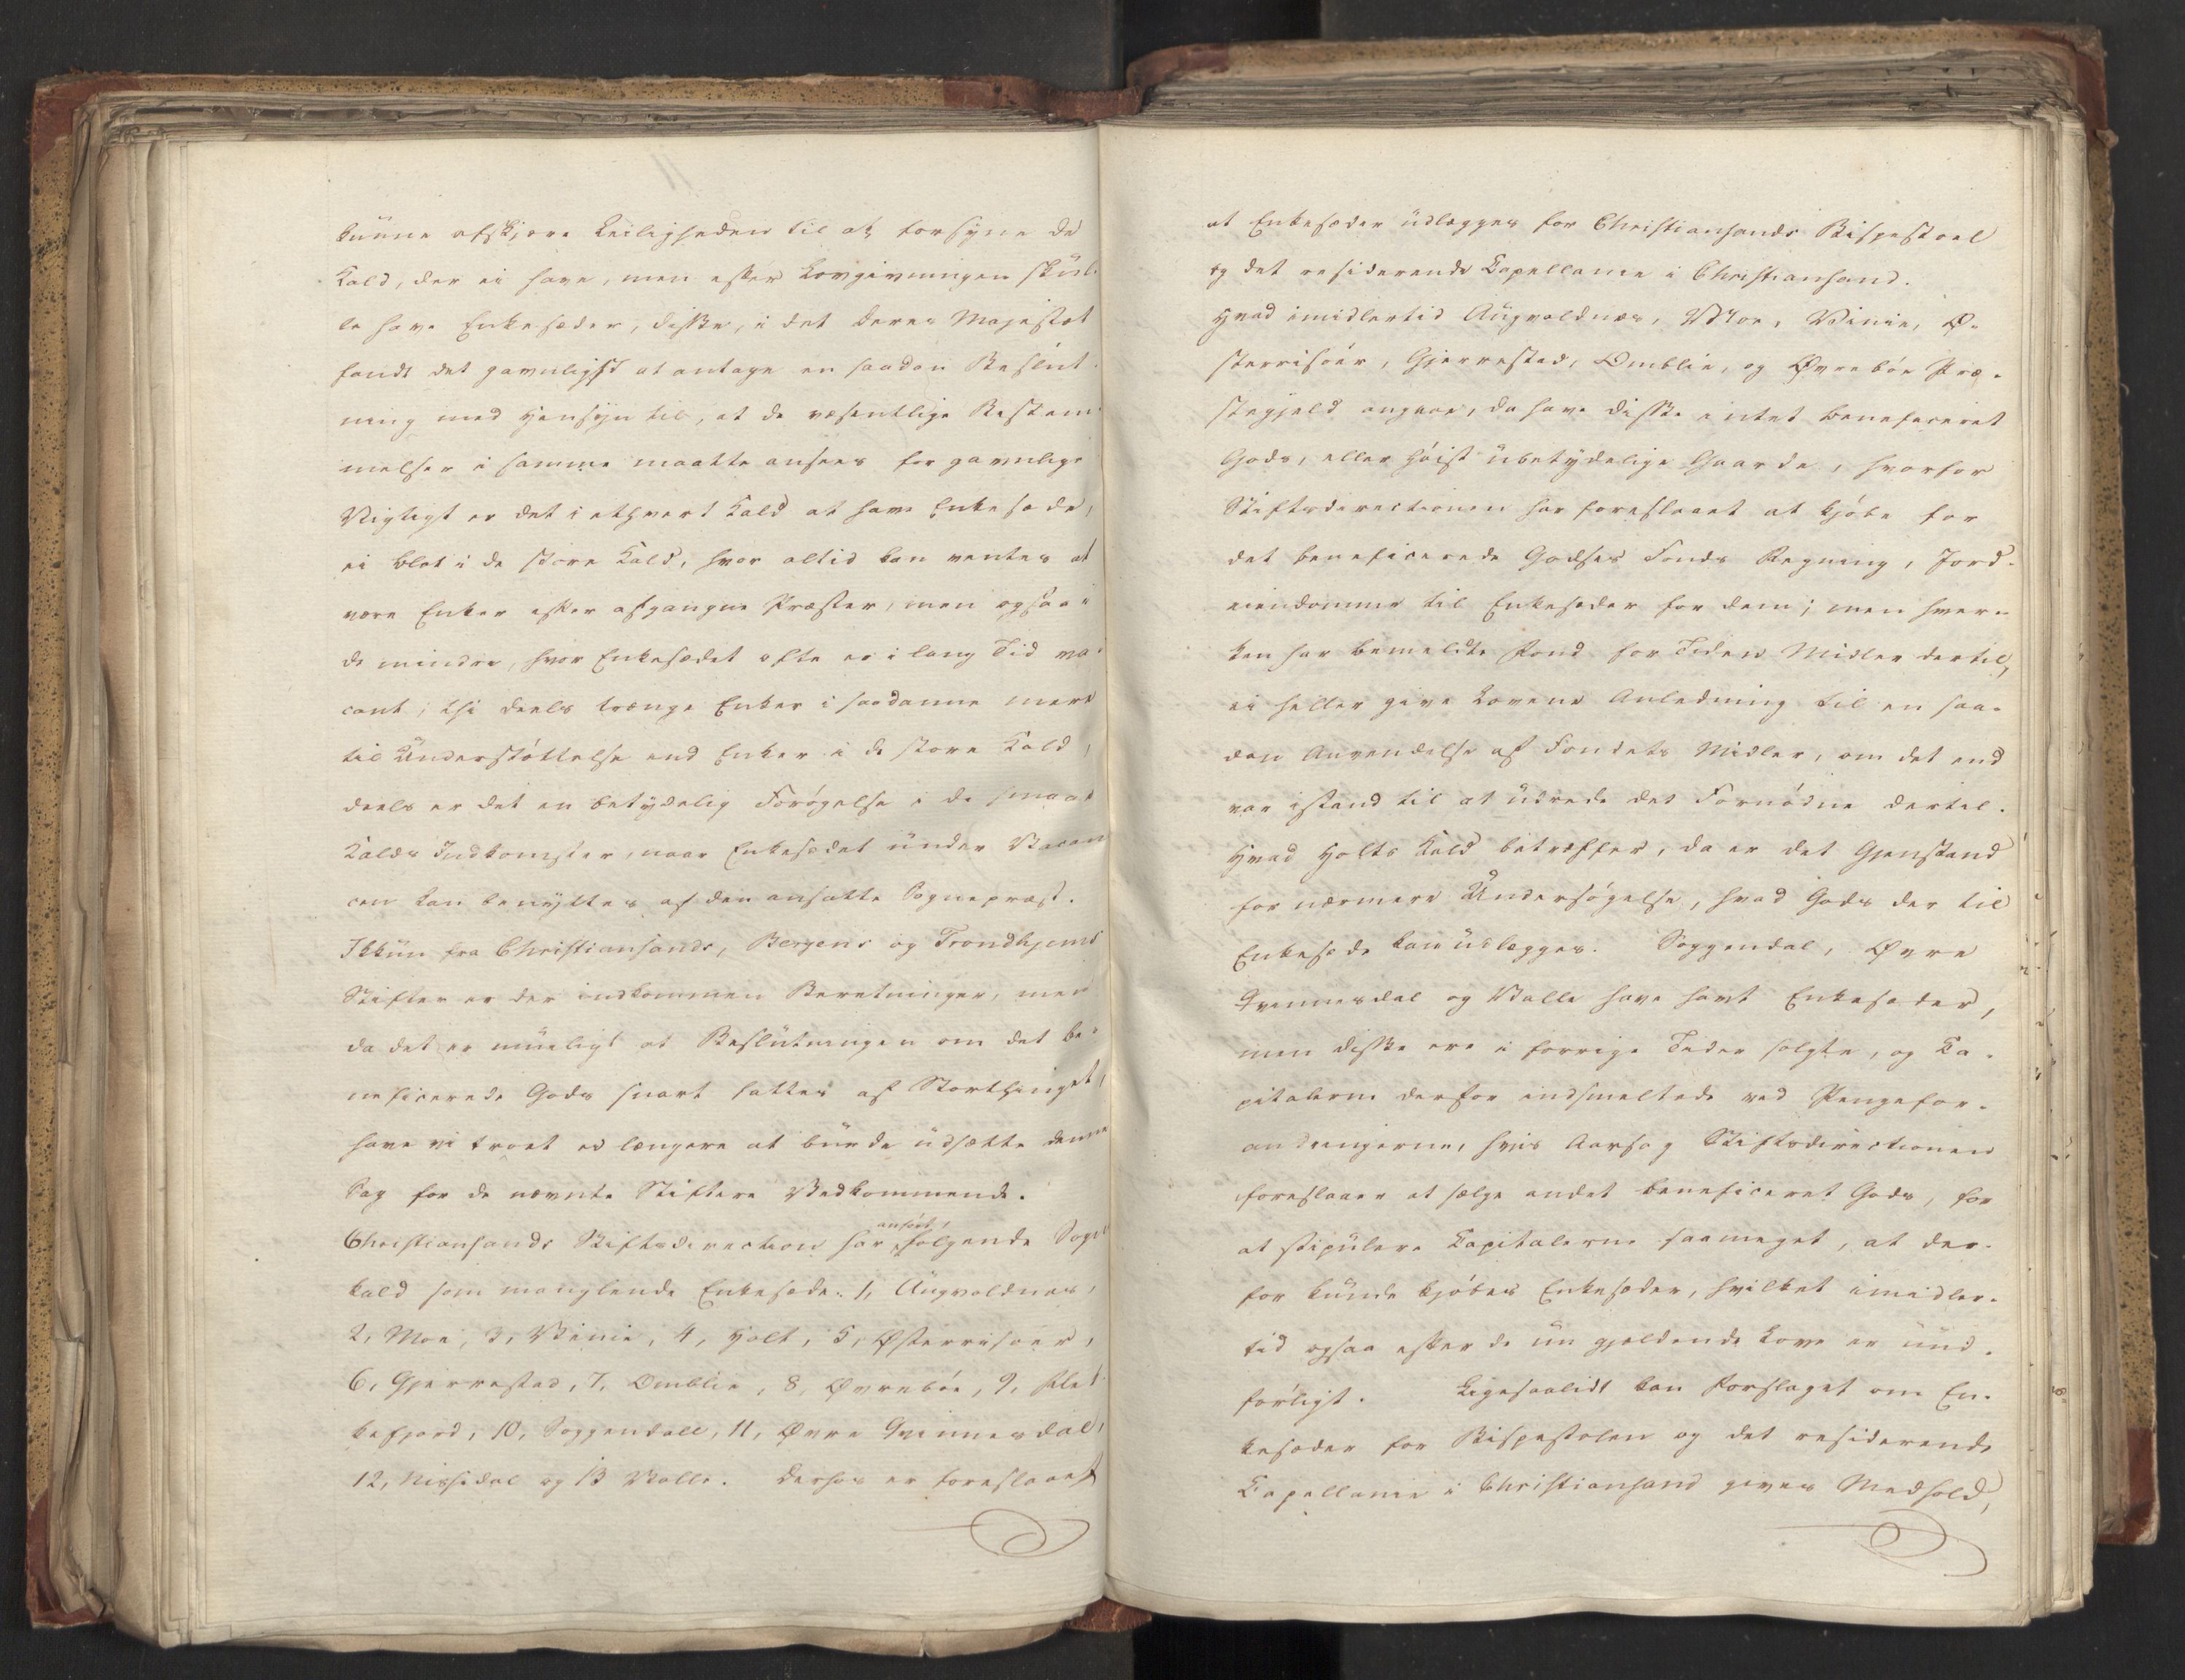 kunne afskjære Leiligheden til at forsyne de
Kald, der ei have, men efter Lovgivningen skul-
le have Enkesæder, diske, i det Deres Majestæt
fandt det gavnligst at antage en saadan Beslut-
ning med Hensyn til, at de væsentlige Bestem-
melser i samme maatte ansees for gavnlige
Vigtigt er det i ethvert Kald at have Enkesæde,
ei blot i de store Kald, hvor altid kan ventes at
være Enker efter afgangne Præster, men ogsaa i
de mindre, hvor Enkesædet ofte er i lang Tid va-
cant, thi deels trænge Enker i saadanne mere
til Understøttelse end Enker i de store Kald,
deels er det en betydelig Forøgelse i de smaae
Kalds Indkomster, naar Enkesædet under Vacan-
cen kan benyttes af den ansatte Sognepræst.
Ikkun fra Christiansands, Bergens og Trondhjems
Stifter er der indkommen Beretninger, men
da det er mueligt at Beslutningen om det be-
neficerede Gods snart fattes af Storthinget,
have vi troet ei længere at burde udsætte denne
Sag for de nævnte Stifters Vedkommende.
Christiansands Stiftsdirection har anført, følgende Sogne
kald som manglende Enkesæde: 1, Augvaldnæs,
2, Moe, 3, Vinie, 4, Holt, 5, Østerrisøer,
6, Gjerrestad, 7, Omblie, 8, Øvrebøe, 9, Flek
kefjord, 10, Soggendall, 11, Øvre Qvinnesdal,
12, Nissedal og 13 Valle. Derhos er foreslaaet
at Enkesæder udlægges for Christiansands Bispestoel
og det residerende Capellanie i Christiansand.
Hvad imidlertid Augvaldnæs, Moe, Vinie, Ø-
sterrisøer, Gjerrestad, Omblie, og Øvrebøe Præ-
stegjeld angaae, da have diske intet beneficeret
Gods, eller høist ubetydelige Gaarde, hvorfor
Stiftsdirectionen har foreslaaet at kjøbe for
det beneficerede Godses Fonds Regning, Jord-
eiendomme til Enkesæder for dem; men hver-
ken har bemeldte Fond for Tiden Midler dertil,
ei heller give Lovene Anledning til en saa-
dan Anvendelse af Fondets Midler, om det end
var istand til at udrede det Fornødne dertil.
Hvad Holts Kald betræffer, da er det Gjenstand
for nærmere Undersøgelse, hvad Gods der til
Enkesæde kan udlægges. Soggendal, Øvre
Qvinnesdal og Valle have havt Enkesæder,
men diske ere i forrige Tider solgte, og Ca-
pitalerne derfor indsmeltede ved Pengefor-
andringerne, hvis Aarsag Stiftsdirectionen
foreslaaer at sælge andet beneficeret Gods, for
at stipulere Capitalerne saameget, at der-
for kunde kjøbes Enkesæder, hvilket imidler-
tid ogsaa efter de nu gjældende Love er uud-
førligt. Ligesaalidt kan Forslaget om En-
kesæder for Bispestolen og det residerende
Capellanie i Christiansand gives Medhold,